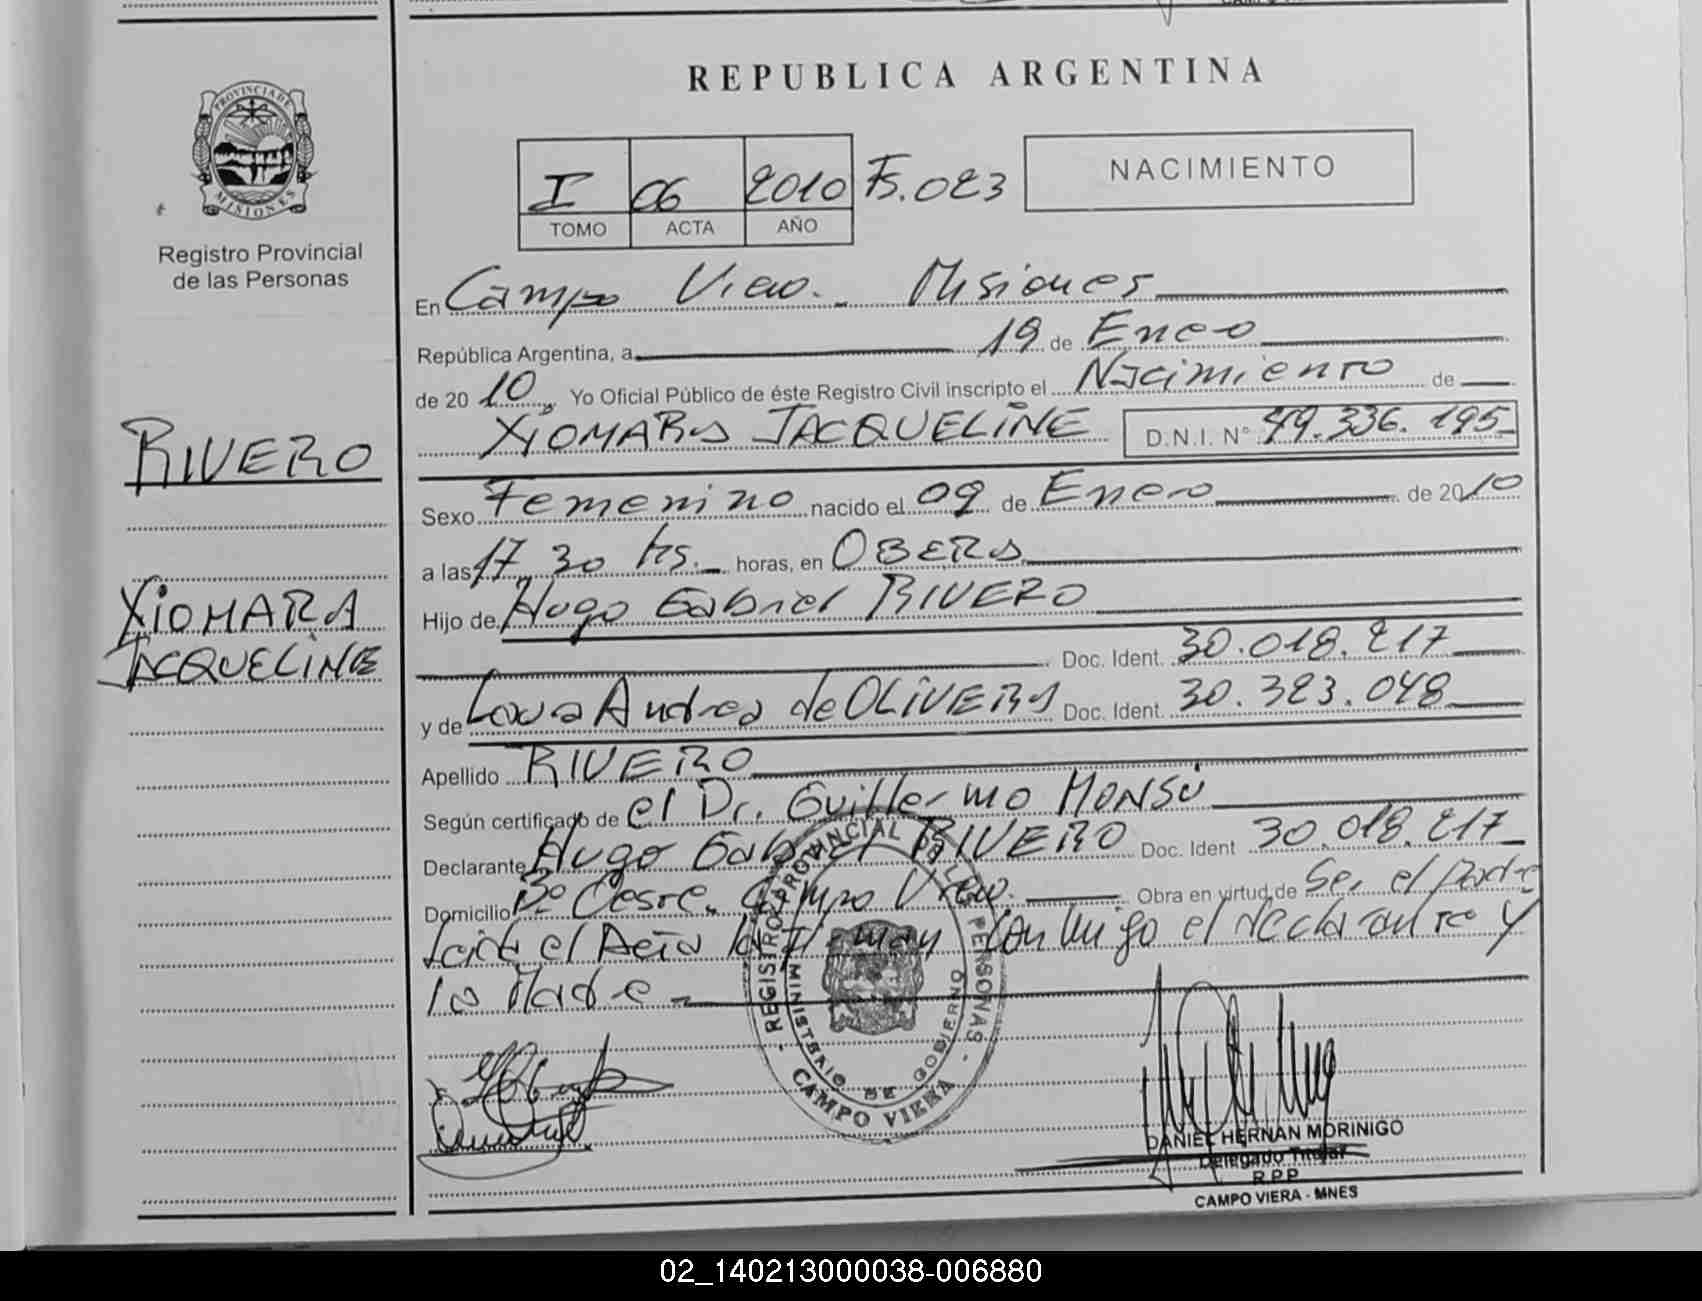 REPUBLICA ARGENTINA
PROVINCIA DE
MISIONES
Registro Provincial
de las Personas
I 06 2010 Fs.023
TOMO ACTA AÑO
NACIMIENTO
En Campo Viera. Misiones
República Argentina, a 19 de Enero
de 2010, Yo Oficial Público de éste Registro Civil inscripto el Nacimiento de
XIOMARA JACQUELINE D.N.I. N° 49.336.195
RIVERO
XIOMARA
JACQUELINE
Sexo Femenino nacido el 09 de Enero de 2010
a las 17 30 hs. horas, en OBERA
Hijo de Hugo Gabriel RIVERO
Doc. Ident. 30.018.217
y de Laura Andrea de OLIVERA Doc. Ident. 30.323.048
Apellido RIVERO
Según certificado de el Dr. Guillermo MONSÚ
Declarante Hugo Gabriel RIVERO Doc. Ident 30.018.217
Domicilio Bº Campo Viera. Obra en virtud de Ser el Padre
el Acta la firman conmigo el declarante y
la Madre
REGISTRO PROVINCIAL DE LAS PERSONAS
MINISTERIO DE GOBIERNO
CAMPO VIERA
DANIEL HERNAN MORINIGO
Delegado Titular
R.P.P.
CAMPO VIERA - MNES
02_140213000038-006880